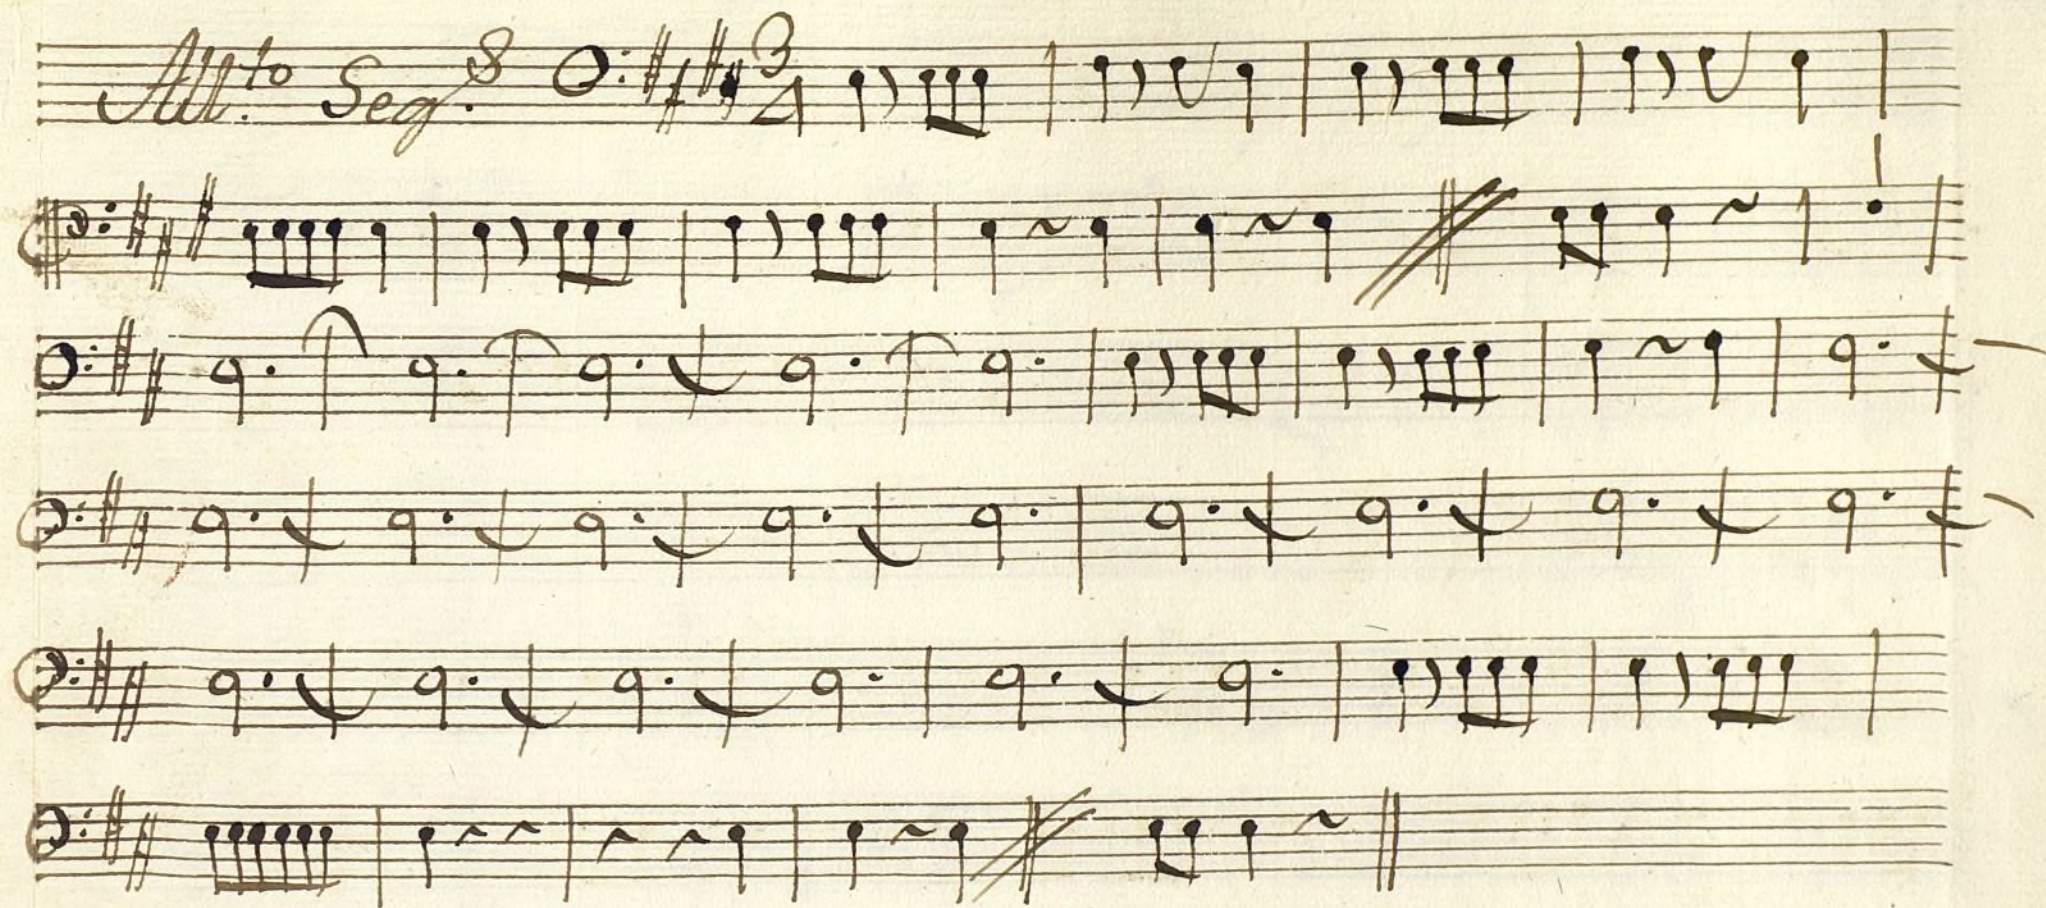 All.to Seg.s 3
4